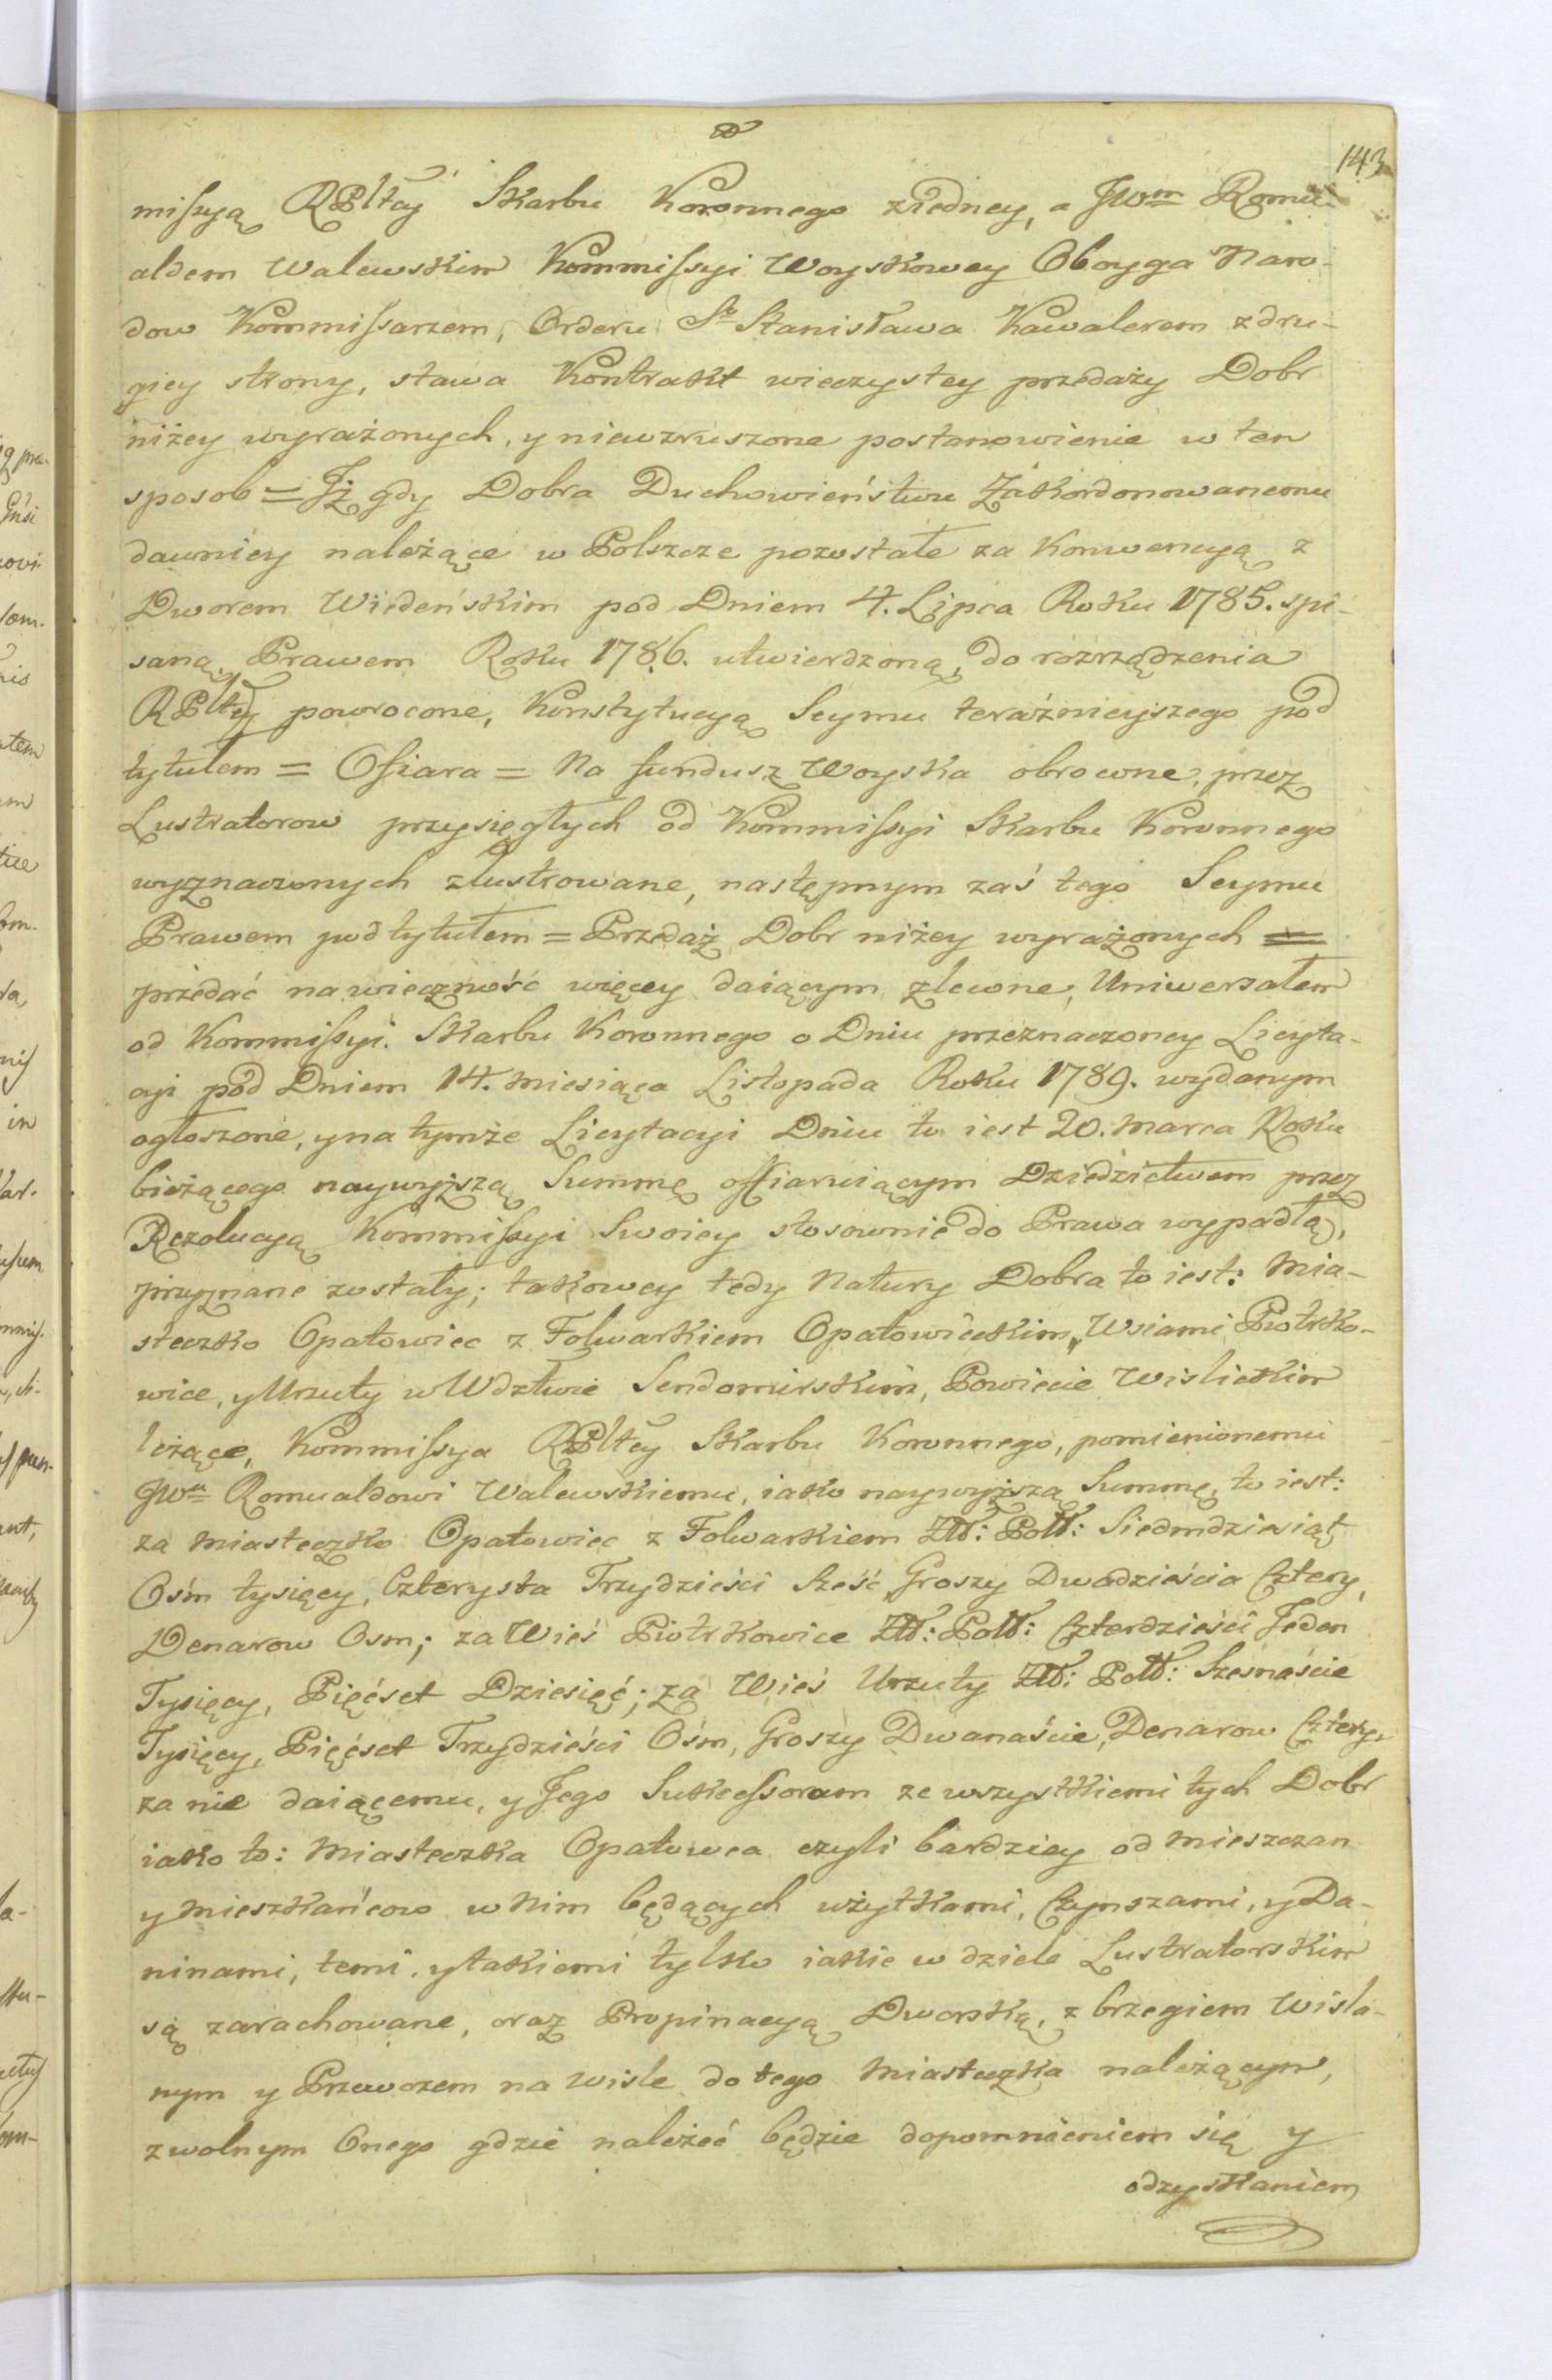 143
miſsyą RPltey Skarbu Koronnego z iedney, a JWm Romu-
aldem Walewskim Kommiſsyi Woyskowey Oboyga Naro-
dow Kommiſsarzem, Orderu St Stanisława Kawalerem z dru-
giey strony, stawa Kontrakt wieczystey przedaży Dobr
niżey wyrażonych, y niewzruszone postanowienie w ten
sposob = Jż gdy Dobra Duchowieństwu Zakordonowanemu
dawniey należące w Polszcze pozostałe za Konwencyą z
Dworem Wiedeńskim pod Dniem 4. Lipca Roku 1785. spi-
saną, Prawem Roku 1786. utwierdzoną, do rozrządzenia
RPltey powrocone, Konstytucyą Seymu teraźnieyszego pod
tytułem = Ofiara = Na fundusz Woyska obrocone, przez
Lustratorow przysięgłych od Kommiſsyi Skarbu Koronnego
wyznaczonych zlustrowane, następnym zaś tego Seymu
Prawem pod tytułem = Przedaż Dobr niżey wyrażonych =
przedać na wieczność więcey daiącym zlecone, Uniwersałem
od Kommiſsyi Skarbu Koronnego o Dniu przeznaczoney Licyta-
cyi pod Dniem 14. Miesiąca Listopada Roku 1789. wydanym
ogłoszone, y na tymże Licytacyi Dniu to iest 20. Marca Roku
bieżącego naywyższą Summę offiaruiącym Dziedzictwem przez
Rezolucyą Kommiſsyi Swoiey stosownie do Prawa wypadłą,
przyznane zostały; takowey tedy Natury Dobra to iest: Mia-
steczko Opatowiec z Folwarkiem Opatowieckim, Wsiami Piotrko-
wice, y Urzuty w Wdztwie Sendomirskim, Powiecie Wislickim
leżące, Kommiſsya RPltey Skarbu Koronnego, pomienionemu
JWu Romualdowi Walewskiemu, iako naywyższą Summę, to iest:
za Miasteczko Opatowiec z Folwarkiem Złł: Poll: Siedmdziesiąt
Ośm tysięcy, Czterysta Trzydzieści Sześć Groszy Dwadzieścia Cztery,
Denarow Osm; za Wieś Piotrkowice Złł: Poll: Czterdzieści Jeden
Tysięcy, Pięćset Dziesięć; za Wieś Urzuty Złł: Poll: Szesnaście
Tysięcy, Pięćset Trzydzieści Ośm, Groszy Dwanaście, Denarow Cztery,
za nie daiącemu, y Jego Sukceſsorom ze wszystkiemi tych Dobr
iako to: Miasteczka Opatowca czyli bardziey od Mieszczan
y Mieszkańcow w Nim będących użytkami, Czynszami, y Da-
ninami, temi, y takiemi tylko iakie w dziele Lustratorskim
są zarachowane, oraz Propinacyą Dworską, z brzegiem Wisla-
nym y Przewozem na Wisle do tego Miasteczka należącym,
z wolnym Onego gdzie należeć będzie dopomnieniem się y
odzyskaniem